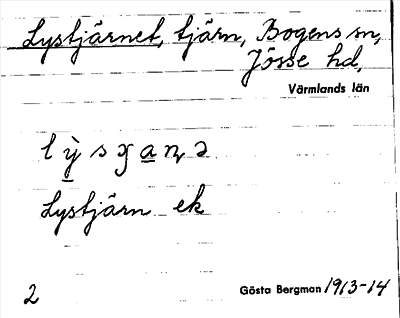 Lystjärnet, tjärn, Bogens sn,
Jösse hd,
Värmlands län
Lystjärn ek
2 Gösta Bergman 1913-14